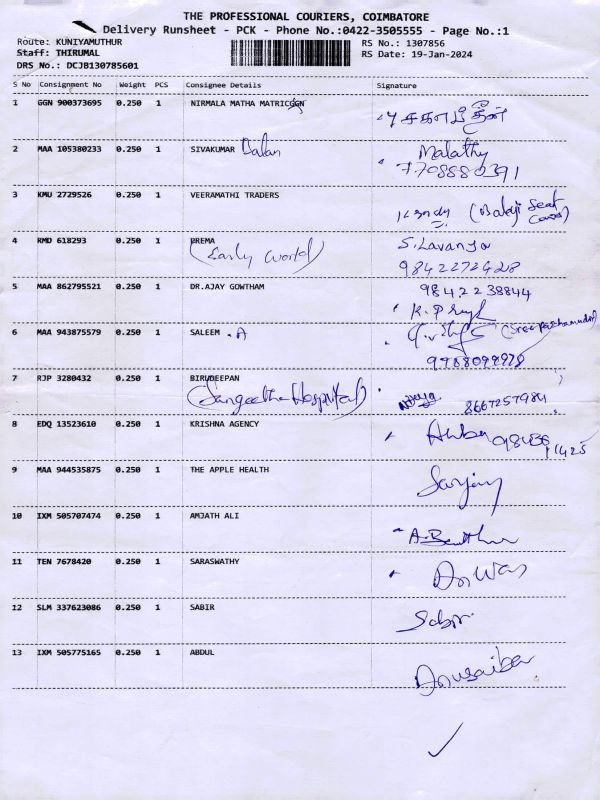 THE PROFESSIONAL COURIERS, COIMBATORE
Delivery Runsheet - PCK - Phone No.:0422-3505555 - Page No.:1
Route: KUNIYAMUTHUR RS No.: 1307856
Staff: THIRUMAL RS Date: 19-Jan-2024
DRS No.: DCJB130785601
S No Consignment No Weight PCS Consignee Details Signature
1 GGN 900373695 0.250 1 NIRMALA MATHA MATRIC
2 MAA 105380233 0.250 1 SIVAKUMAR Malathy
7708880391
3 KMU 2729526 0.250 1 VEERAMATHI TRADERS (Balaji Seat
4 RMD 618293 0.250 1 PREMA S.Lavanya
(Early World) 9842272428
5 MAA 862795521 0.250 1 DR.AJAY GOWTHAM 9842238844
6 MAA 943875579 0.250 1 SALEEM . A
7 RJP 3280432 0.250 1 BIRUDEEPAN
(Sangeetha Hospital) 8667257984
8 EDQ 13523610 0.250 1 KRISHNA AGENCY
9 MAA 944535875 0.250 1 THE APPLE HEALTH
10 IXM 505707474 0.250 1 AMJATH ALI
11 TEN 7678420 0.250 1 SARASWATHY
12 SLM 337623086 0.250 1 SABIR Sabir
13 IXM 505775165 0.250 1 ABDUL